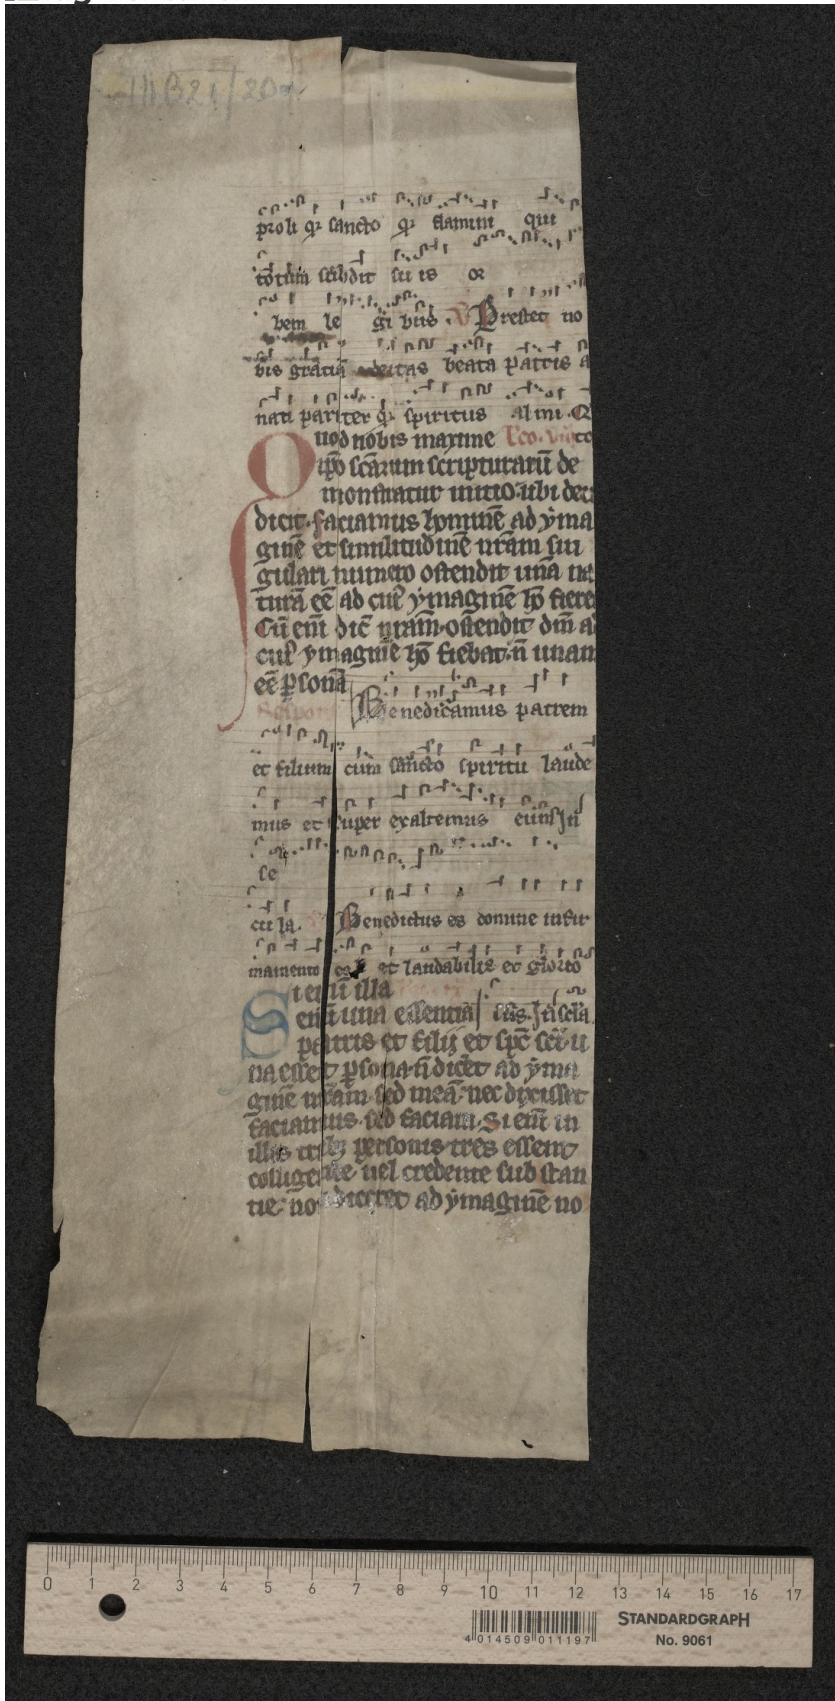 III B 21/20
proli qꝫ sancto qꝫ flamini qui
totum subdit su is or
bem le gi bus. V Prestet no
bis gratiā deitas beata patris a
nati pariter qꝫ spiritus almi. Q
Quod nobis maxime Lco. viii
ipo scārum scripturarū de
monstratur initio. ubi deu
dicit. faciamus hominē ad ẏma
ginē et similitudinē nrām sin
gulari numero ostendit unā na
turā eē ad cuiꝰ ẏmaginē hō fieret
Cū enī dic̄ nrām. ostendit dm̄ a
cuiꝰ ẏmaginē hō fiebat. n̄ unam
eē ꝑsonā
Respons Benedicamus patrem
et filium cum sancto spiritu laude
mus et super exaltemus eum In
se
cu la. V Benedictus es domine in fir
mamento celi et laudabilis et glorio
Si enī in illa
enī una essentia sus. In scła.
patris et filij et spc̄ scī. u
na esset ꝑsona. n̄ dicēt ad ẏma
ginē nrām. sed meā. nec dixisset
faciamus. sed faciam. Si enī in
illis tribꝫ personis tres essent
collige uel credente substan
tie. no diceret ad ẏmaginē no
0 1 2 3 4 5 6 7 8 9 10 11 12 13 14 15 16 17
STANDARDGRAPH
No. 9061
4 014509 011197